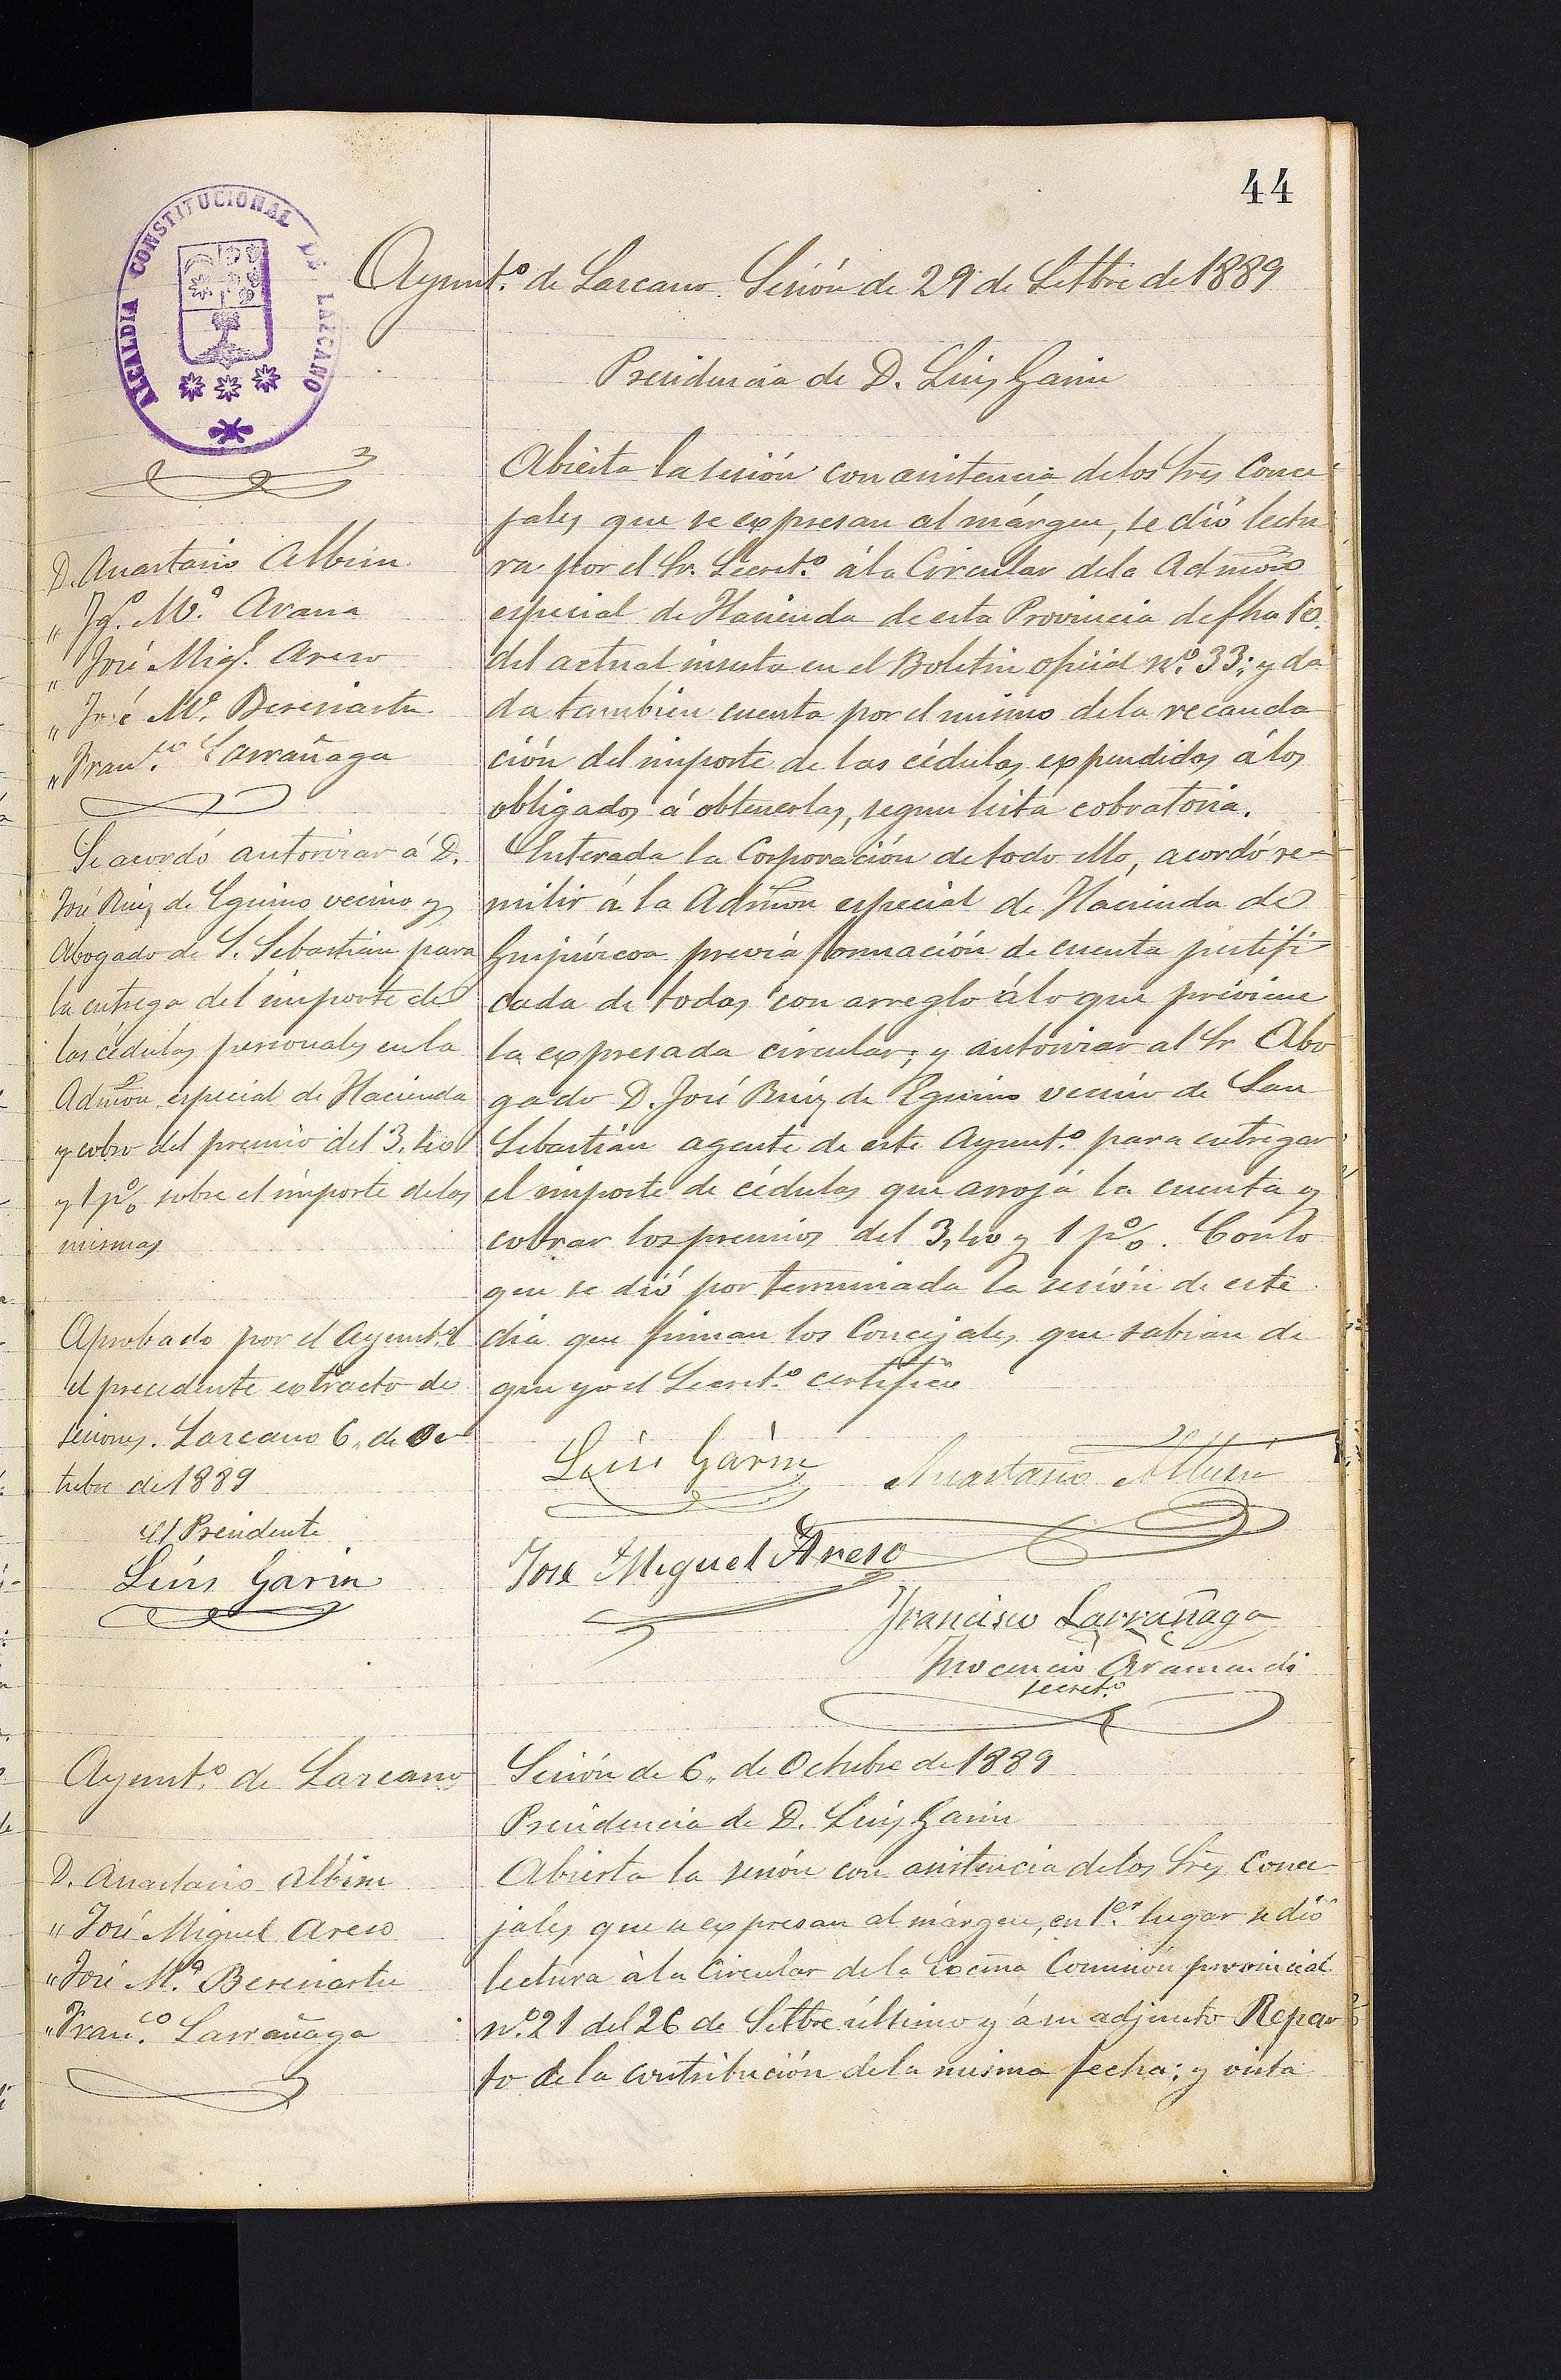 44
ALCALDIA CONSTITUCIONAL DE LAZCANO
Ayunt.º de Lazcano. Sesión de 29 de Setbre de 1889
Presidencia de D. Luis Garin
D. Anastasio Albisu
" Jq.º M.ª Arana
" José Migl. Areso
" José M.ª Beresiartu
" Fran.co Larrañaga
Se acordó autorizar á D.
José Ruiz de Eguino vecino y
Abogado de S. Sebastián para
la entrega del importe de
las cédulas personales en la
Admon especial de Hacienda
y cobro del premio del 3,40
y 1 pº/o sobre el importe de las
mismas
Aprobado por el Ayunt.º
el precedente extracto de
sesiones. Lazcano 6,, de Oc-
tubre de 1889
El Presidente
Luis Garin
Abierta la sesión con asistencia de los Sres Conce
jales que se expresan al márgen, se dió lectu
ra por el Sr. Secret.º á la Circular de la Admon
especial de Hacienda de esta Provincia de fha 10
del actual inserta en el Boletin oficial nº. 33; y da
da tambien cuenta por el mismo de la recauda
ción del importe de las cédulas expendidas á los
obligados á obtenerlas, segun lista cobratoria.
Enterada la Corporación de todo ello, acordó re-
mitir á la Admon especial de Hacienda de
Guipúzcoa previa formación de cuenta justifi
cada de todas con arreglo á lo que previene
la expresada circular; y autorizar al Sr Abo
gado D. José Ruiz de Eguino vecino de San
Sebastián agente de este Ayunt.º para entregar
el importe de cédulas que arroja la cuenta y
cobrar los premios del 3,40 y 1 pº/o. Con lo
que se dió por terminada la sesión de este
dia que firman los Concejales que sabian de
que yo el Secret.º certifico
Luis Garin Anastasio Albisu
José Miguel Areso
Francisco Larrañaga
Inocencio Aramendi
secret.º
Ayunt.º de Lazcano
D. Anastasio Albisu
" José Miguel Areso
" José M.ª Beresiartu
" Fran.co Larrañaga
Sesión de 6,, de Octubre de 1889
Presidencia de D. Luis Garin
Abierta la sesión con asistencia de los Sres Conce-
jales que se expresan al márgen, en 1.er lugar se dió
lectura á la Circular de la Excma Comisión provincial
nº. 21 del 26 de Setbre último y á su adjunto Repar
to de la contribución de la misma fecha; y vista